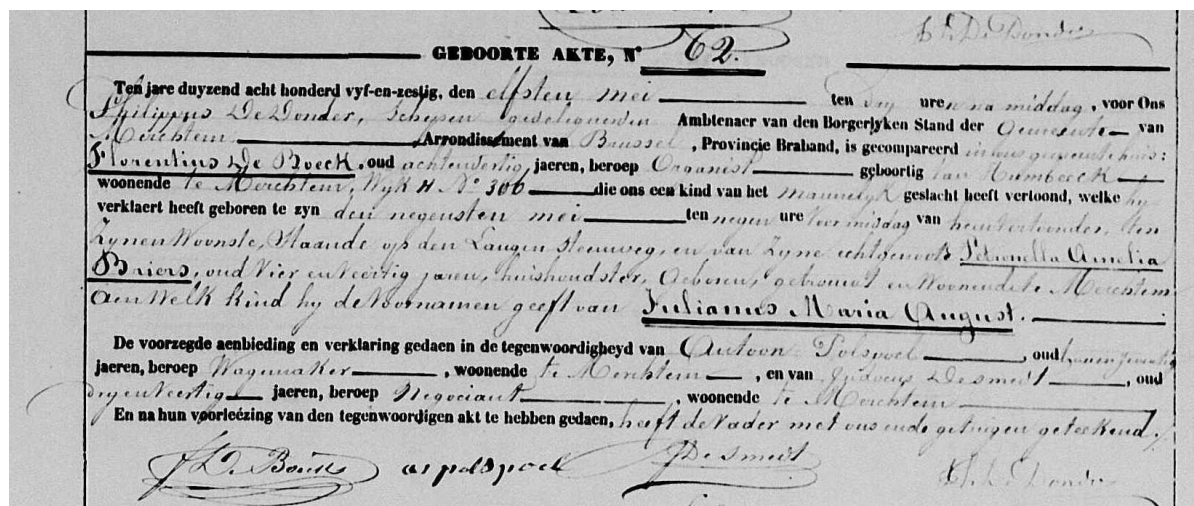 Ph. De Donder
GEBOORTE AKTE, N° 62.
Ten jare duyzend acht honderd vyf-en-zestig, den elfsten mei ten dry uren na middag, voor Ons
Philippus De Donder, Schepen gedelegueerden Ambtenaer van den Borgerlyken Stand der Gemeente van
Merchtem Arrondissement van Brussel, Provincie Braband, is gecompareerd in ons gemeentehuis:
Florentius De Boeck, oud achtendertig jaeren, beroep Organist geboortig van Humbeeck
woonende te Merchtem, Wyk H N° 306 die ons een kind van het mannelyk geslacht heeft vertoond, welke hy
verklaert heeft geboren te zyn den negensten mei ten negen ure voormiddag van hem vertoonder, ten
Zynen Woonste, Staande op den Langen Steenweg, en van Zyne echtgenoote Petronella Amelia
Briers, oud Vier en Veertig jaren, huishoudster, Geboren, getrouwt en Woonende te Merchtem
Aen Welk Kind hy de Voornamen geeft van Julianus Maria August.
De voorzegde aenbieding en verklaring gedaen in de tegenwoordigheyd van Antoon Polspoel, oud
jaeren, beroep Wagemaker, woonende te Merchtem, en van Judocus Desmedt, oud
dry en Veertig jaeren, beroep Negociant, woonende te Merchtem
En na hun voorleézing van den tegenwoordigen akt te hebben gedaen, heeft de Vader met ons ende getuigen geteekend.
F De Boeck as polspoel J Desmedt Ph. De Donder